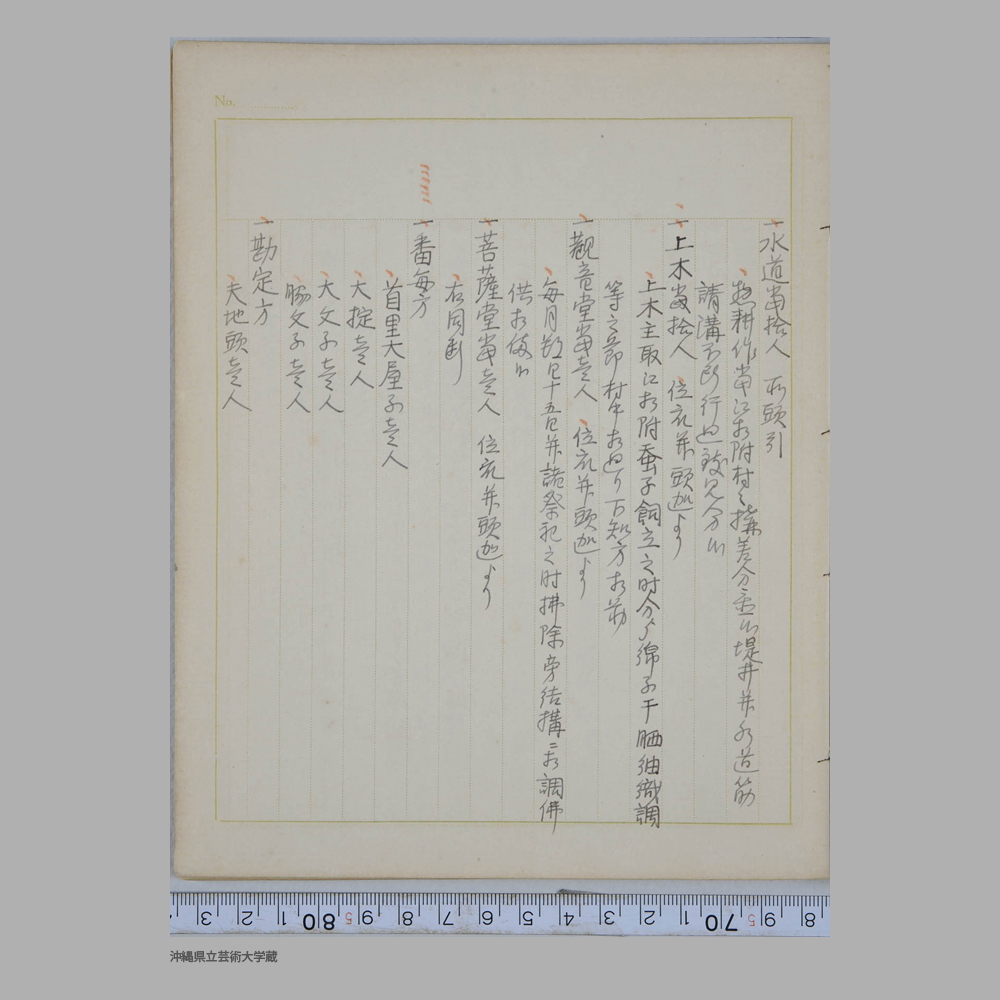 No.
一水道當拾人 石頭引
惣耕作當江相附村々構差分爲仕堤井并水道筋
請溝不行迦致見分仕
一上木當拾人 位衆并頭迦より
上木主取江相附蚕子飼立之時分より綿子干晒紬織調
等之節村中相迦り下知方相勤
一觀音堂當壱人 位衆并頭迦より
毎月朔日十五日并諸祭祀之時拂除旁結構ニ相調佛
供相備ル
一菩薩堂當壱人 位衆并頭迦より
右同断
一番毎方
首里大屋子壱人
大掟壱人
大文子壱人
脇文子壱人
一勘定方
夫地頭壱人
3 2 1 80 9 8 7 6 5 4 3 2 1 70 9 8
沖縄県立芸術大学蔵